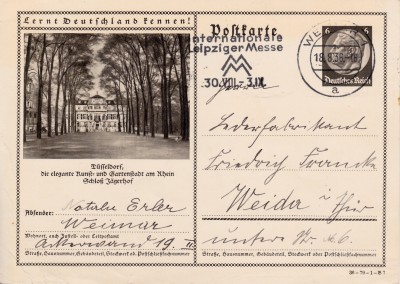 Lernt Deutschland kennen!
Düsseldorf,
die elegante Kunst- und Gartenstadt am Rhein
Schloß Jägerhof
Absender: Natalie Erler
Weimar
Wohnort, auch Zustell- oder Leitpostamt
Ackerwand 19. II
Straße, Hausnummer, Gebäudeteil, Stockwerk od. Postschließfachnummer
Postkarte
Internationale
Leipziger Messe
30.VIII.-3.IX.
18.8.36
a
6
6
Deutsches Reich
Lederfabrikant
Friedrich Francke
Weida i/Thür
untere Str.
Straße, Hausnummer, Gebäudeteil, Stockwerk oder Postschließfachnummer